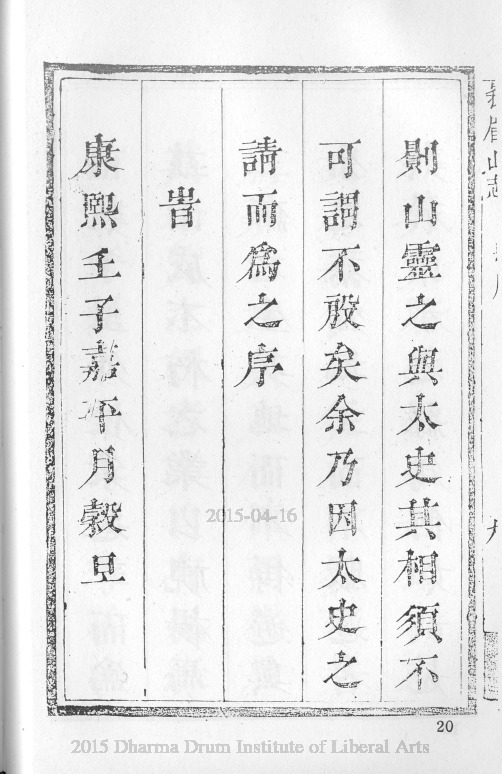 則山靈之與太史共相須不
可謂不殷矣余乃因太史之
請而為之序
旹
康熙壬子嘉平月穀旦
2015-04-16
20
2015 Dharma Drum Institute of Liberal Arts